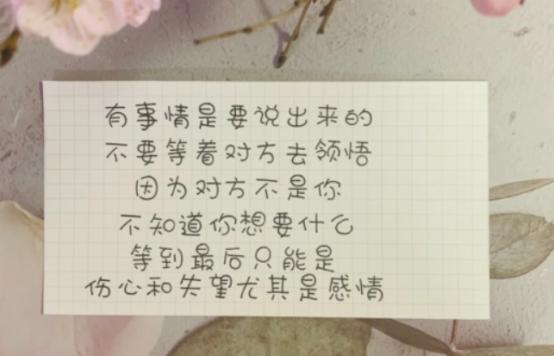 有事情是要说出来的
不要等着对方去领悟
因为对方不是你
不知道你想要什么
等到最后只能是
伤心和失望尤其是感情